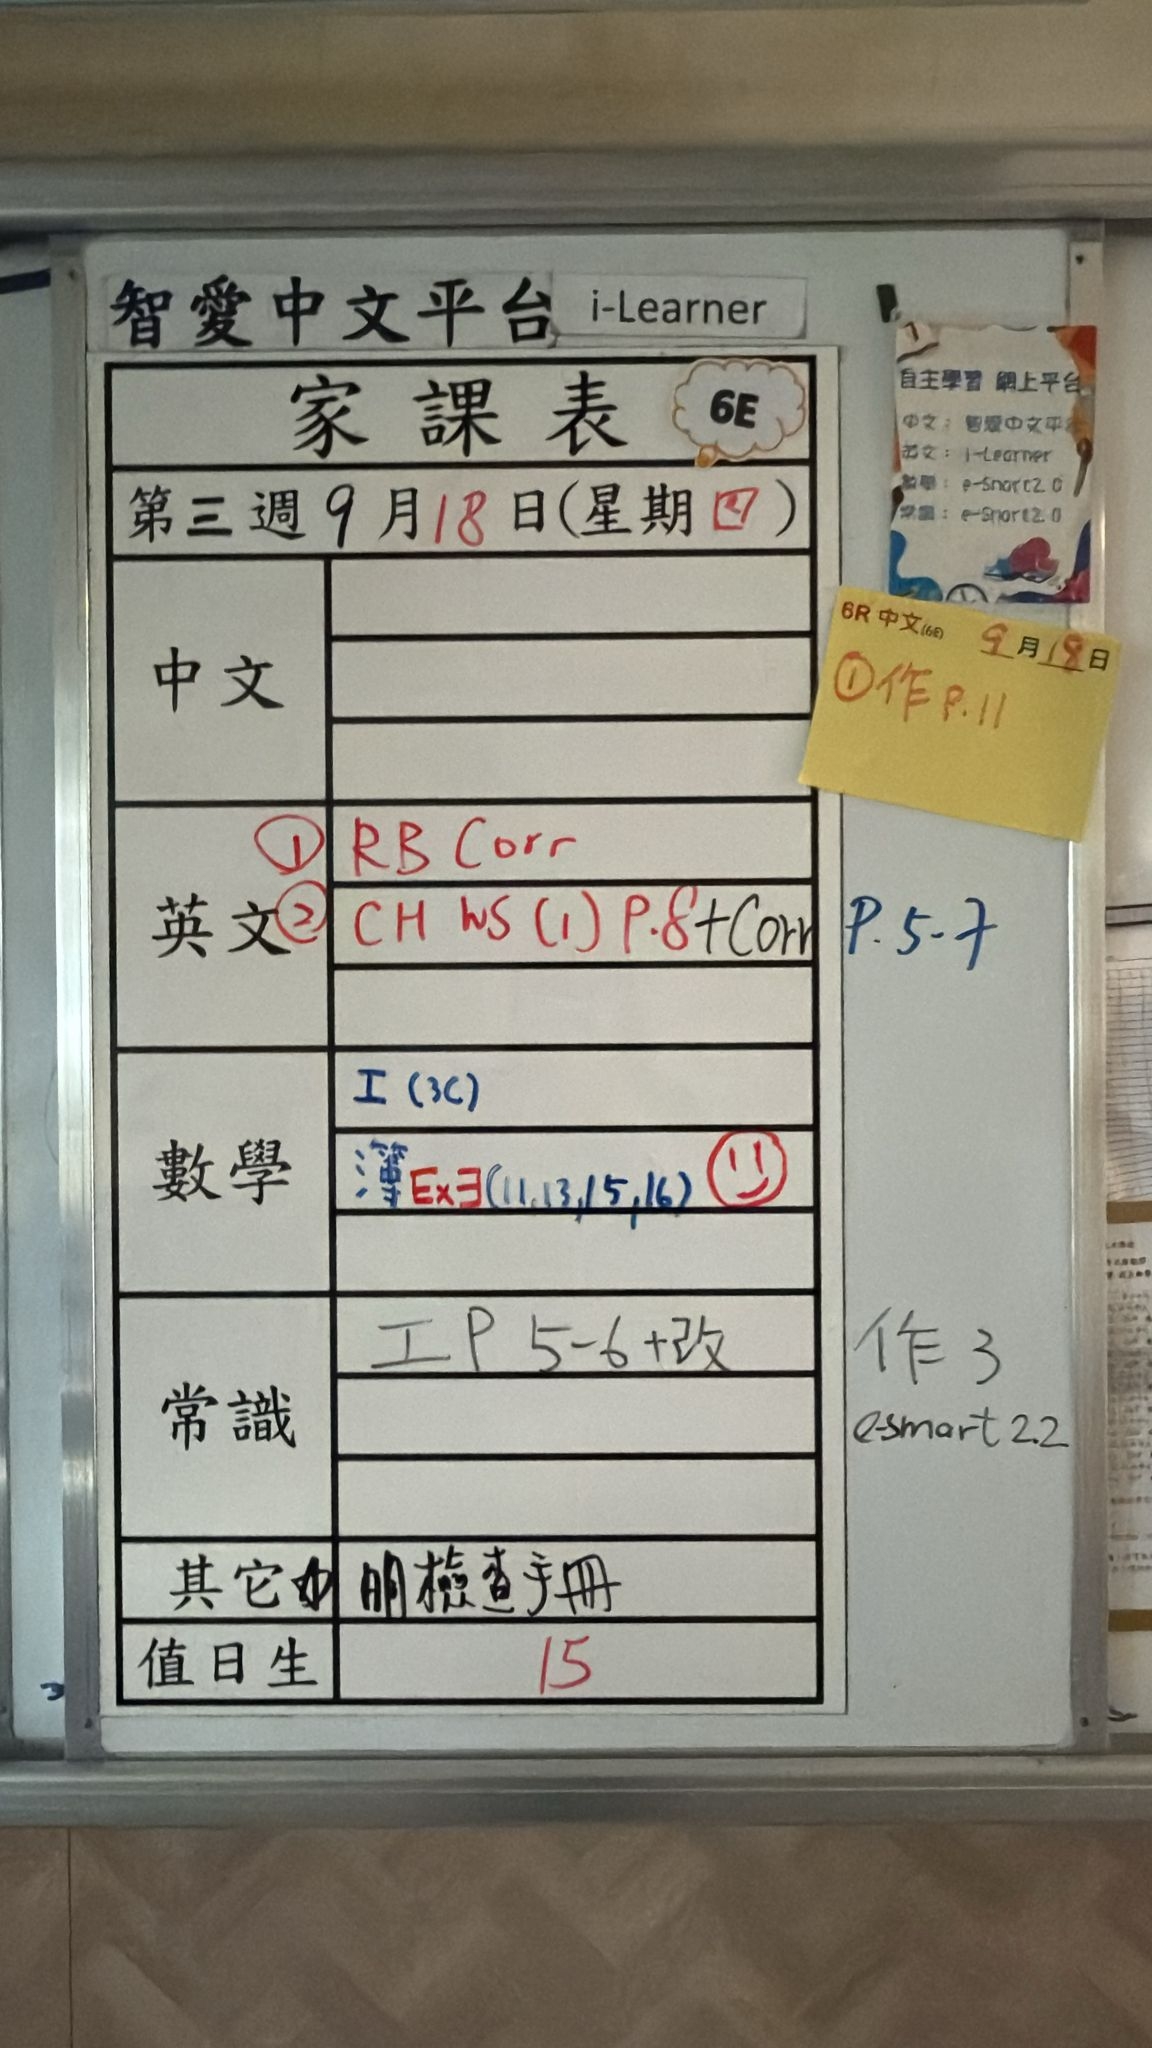 智愛中文平台 i-Learner
家課表 6E
第三週9月18日(星期四)
自主學習 網上平台
中文：智愛中文平台
英文：i-Learner
數學：e-Smart2.0
常識：e-Smart2.0
6R 中文(6E) 9月18日
①作 P.11
中文
英文
① RB Corr
② CH WS (1) P.8+Corr P.5-7
數學
工 (3C)
簿 Ex3(11,13,15,16)
常識
工 P 5-6+改 作 3
e-smart 2.2
其它 明檢查手冊
值日生 15